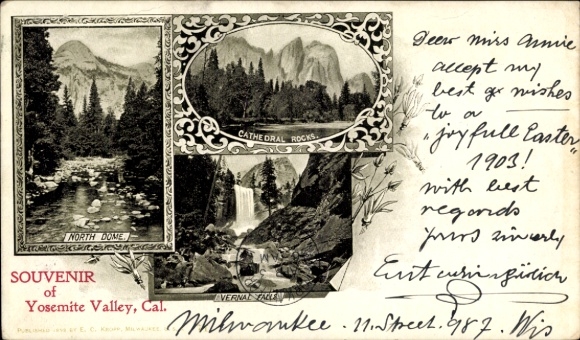 NORTH DOME.
CATHEDRAL ROCKS.
VERNAL FALLS.
SOUVENIR
of
Yosemite Valley, Cal.
PUBLISHED 1898 BY E. C. KROPP, MILWAUKEE,
Dear miss Annie
accept my
best wishes
to a
"joyfull Easter"
1903!
with best
regards
yours sincerly
Milwaukee. 11. Street. 987. Wis